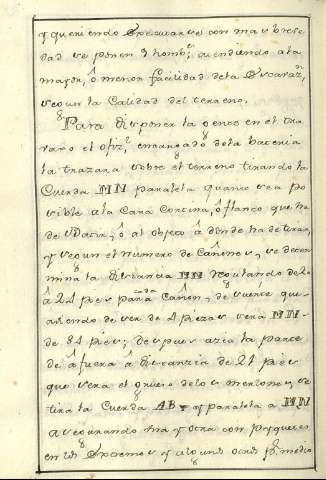 y queriendo executarse con mas breve
dad se ponen 3 homb.s atendiendo ala
mayor, ô menor facilidad dela Escavaz.n
segun la Calidad del terreno.
Para disponer la gente en el tra
vaxo el ofiz.l encargado dela bateria
la trazara sobre el terreno tirando la
Cuerda MN paralela quanto sea po
sible ala Cara Cortina, ô flanco que ha
de vatir, ô al objeto â donde ha de tirar,
y segun el numero de Cañones, se deter
mina la distancia MN regulando de 20
â 24 pies para cada Cañon, de suerte que
aviendo de ser de 4 piezas sera MN
de 84 pies; despues azia la parte
de âfuera â distanzia de 21 pies
que sera el grueso delos merlones, se
tira la Cuerda AB y paralela a MN
asegurando una y otra con piquetes
en los extremos y algunos otros p.r medio